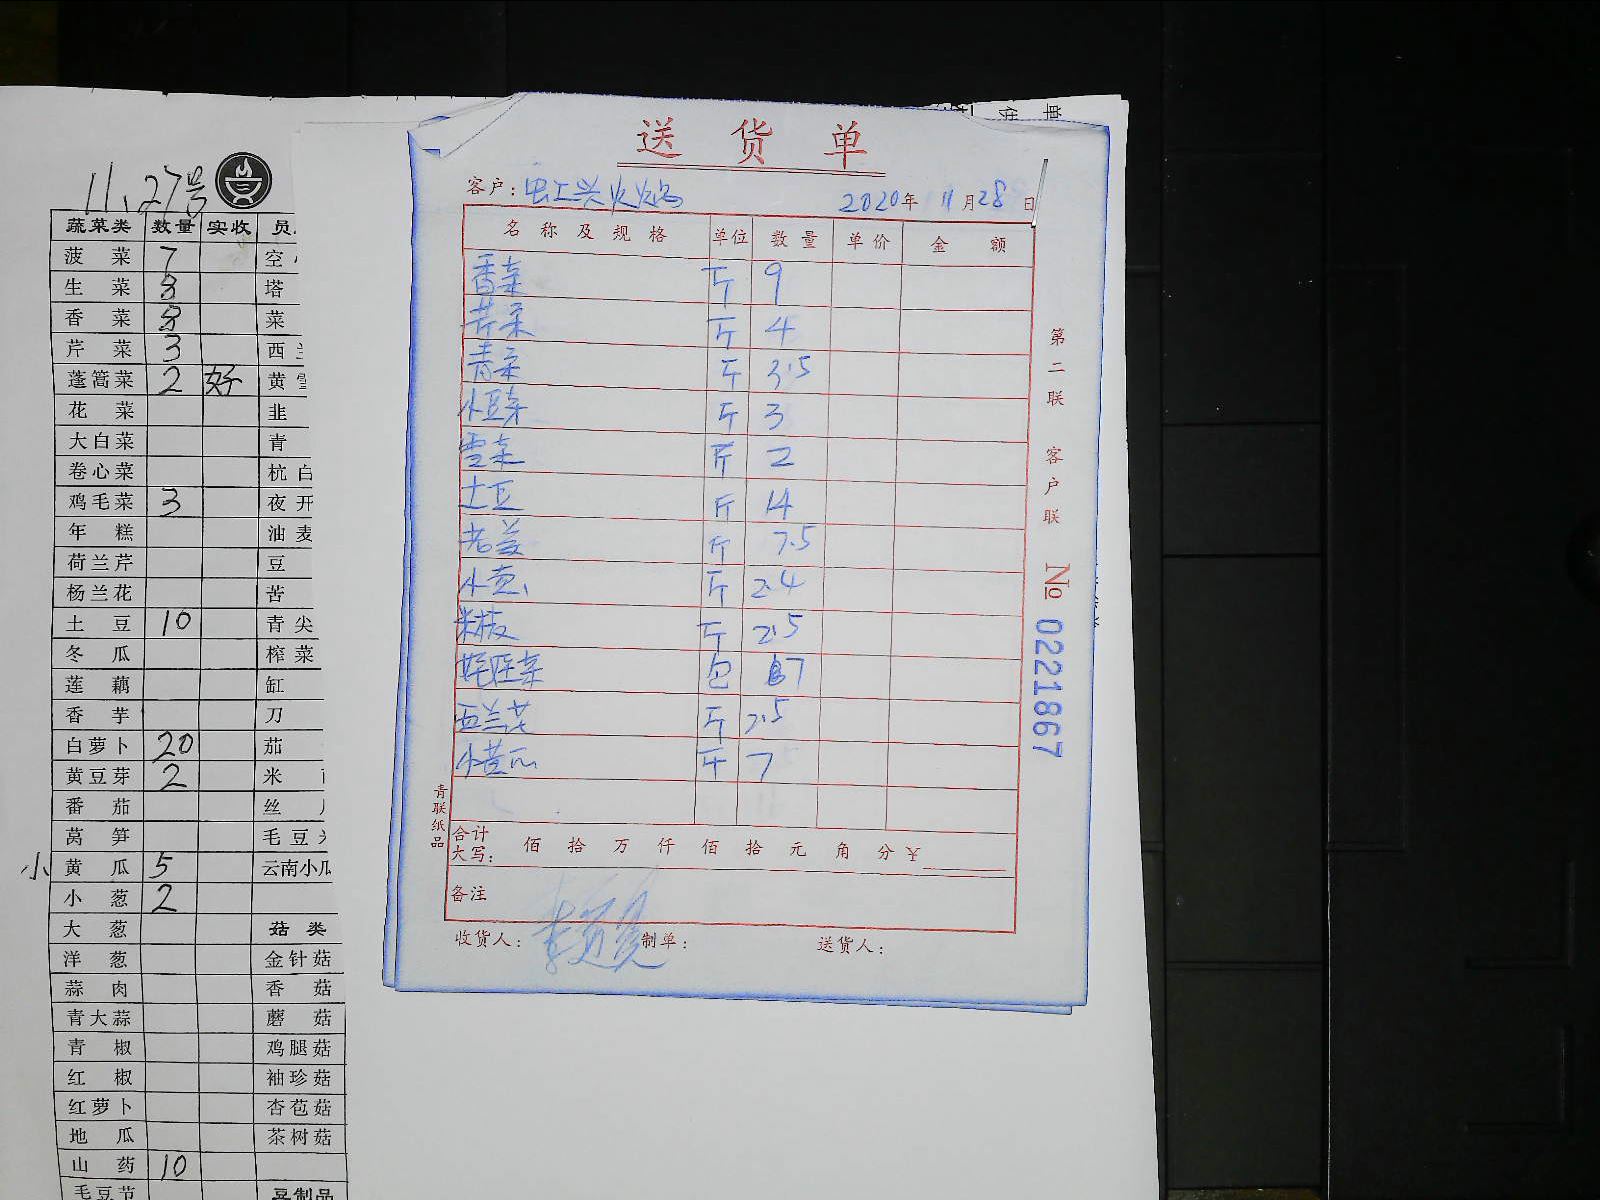 11.27号
蔬菜类 数量 实收
菠菜 7 空
生菜 塔
香菜 菜
芹菜 3 西
蓬篙菜 2 好 黄
花菜 韭
大白菜 青
卷心菜 杭白
鸡毛菜 3 夜开
年糕 油麦
荷兰芹 豆
杨兰花 苦
土豆 10 青尖
冬瓜 榨菜
莲藕 缸
香芋 刀
白萝卜 20 茄
黄豆芽 2 米
番茄 丝
莴笋 毛豆
小 黄瓜 5 云南小瓜
小葱 2
大葱 菇类
洋葱 金针菇
蒜肉 香菇
青大蒜 蘑菇
青椒 鸡腿菇
红椒 袖珍菇
红萝卜 杏苞菇
地瓜 茶树菇
山药 10
毛豆节 豆制品
送货单
客户: 火锅
2020年 11月28日
名称及规格 单位 数量 单价 金额
香菜 斤 9
芹菜 斤 4
青菜 斤 3.5
小豆芽 斤 3
雪菜 斤 2
土豆 斤 14
老姜 斤 7.5
斤 2.4
斤 2.5
娃娃菜 包 7
西兰花 斤 7.5
小黄瓜 斤 7
合计
大写: 佰 拾 万 仟 佰 拾 元 角 分 ¥
备注
收货人: 制单: 送货人:
第二联 客户联
No 0221867
青联纸品